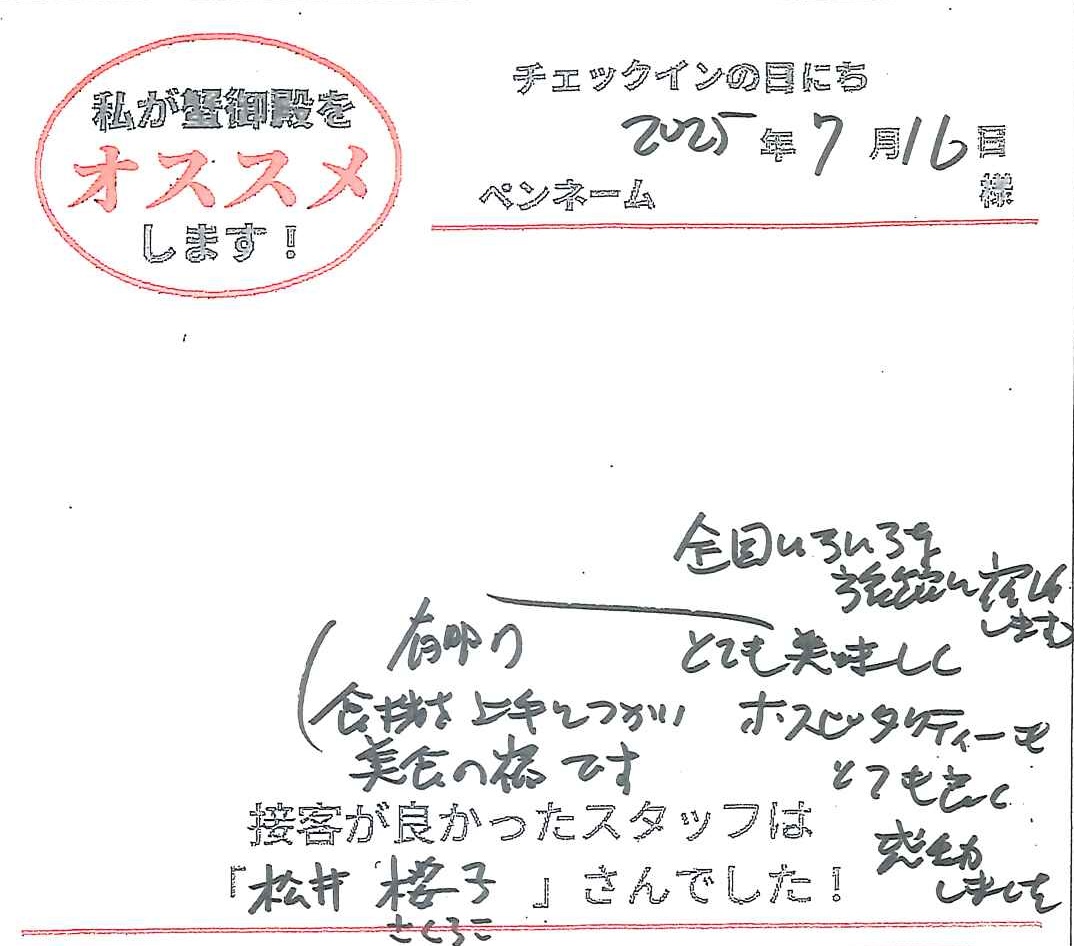 私が蟹御殿を
オススメ
します!
チェックインの日にち
2025年7月16日
ペンネーム 様
全国いろいろな
旅館に宿泊
しますが
とても美味しく
ホスピタリティーも
とても良く
感動
しました
有明の
食材を上手につかい
美食の宿です
接客が良かったスタッフは
「松井 桜子」さんでした!
さくらこ